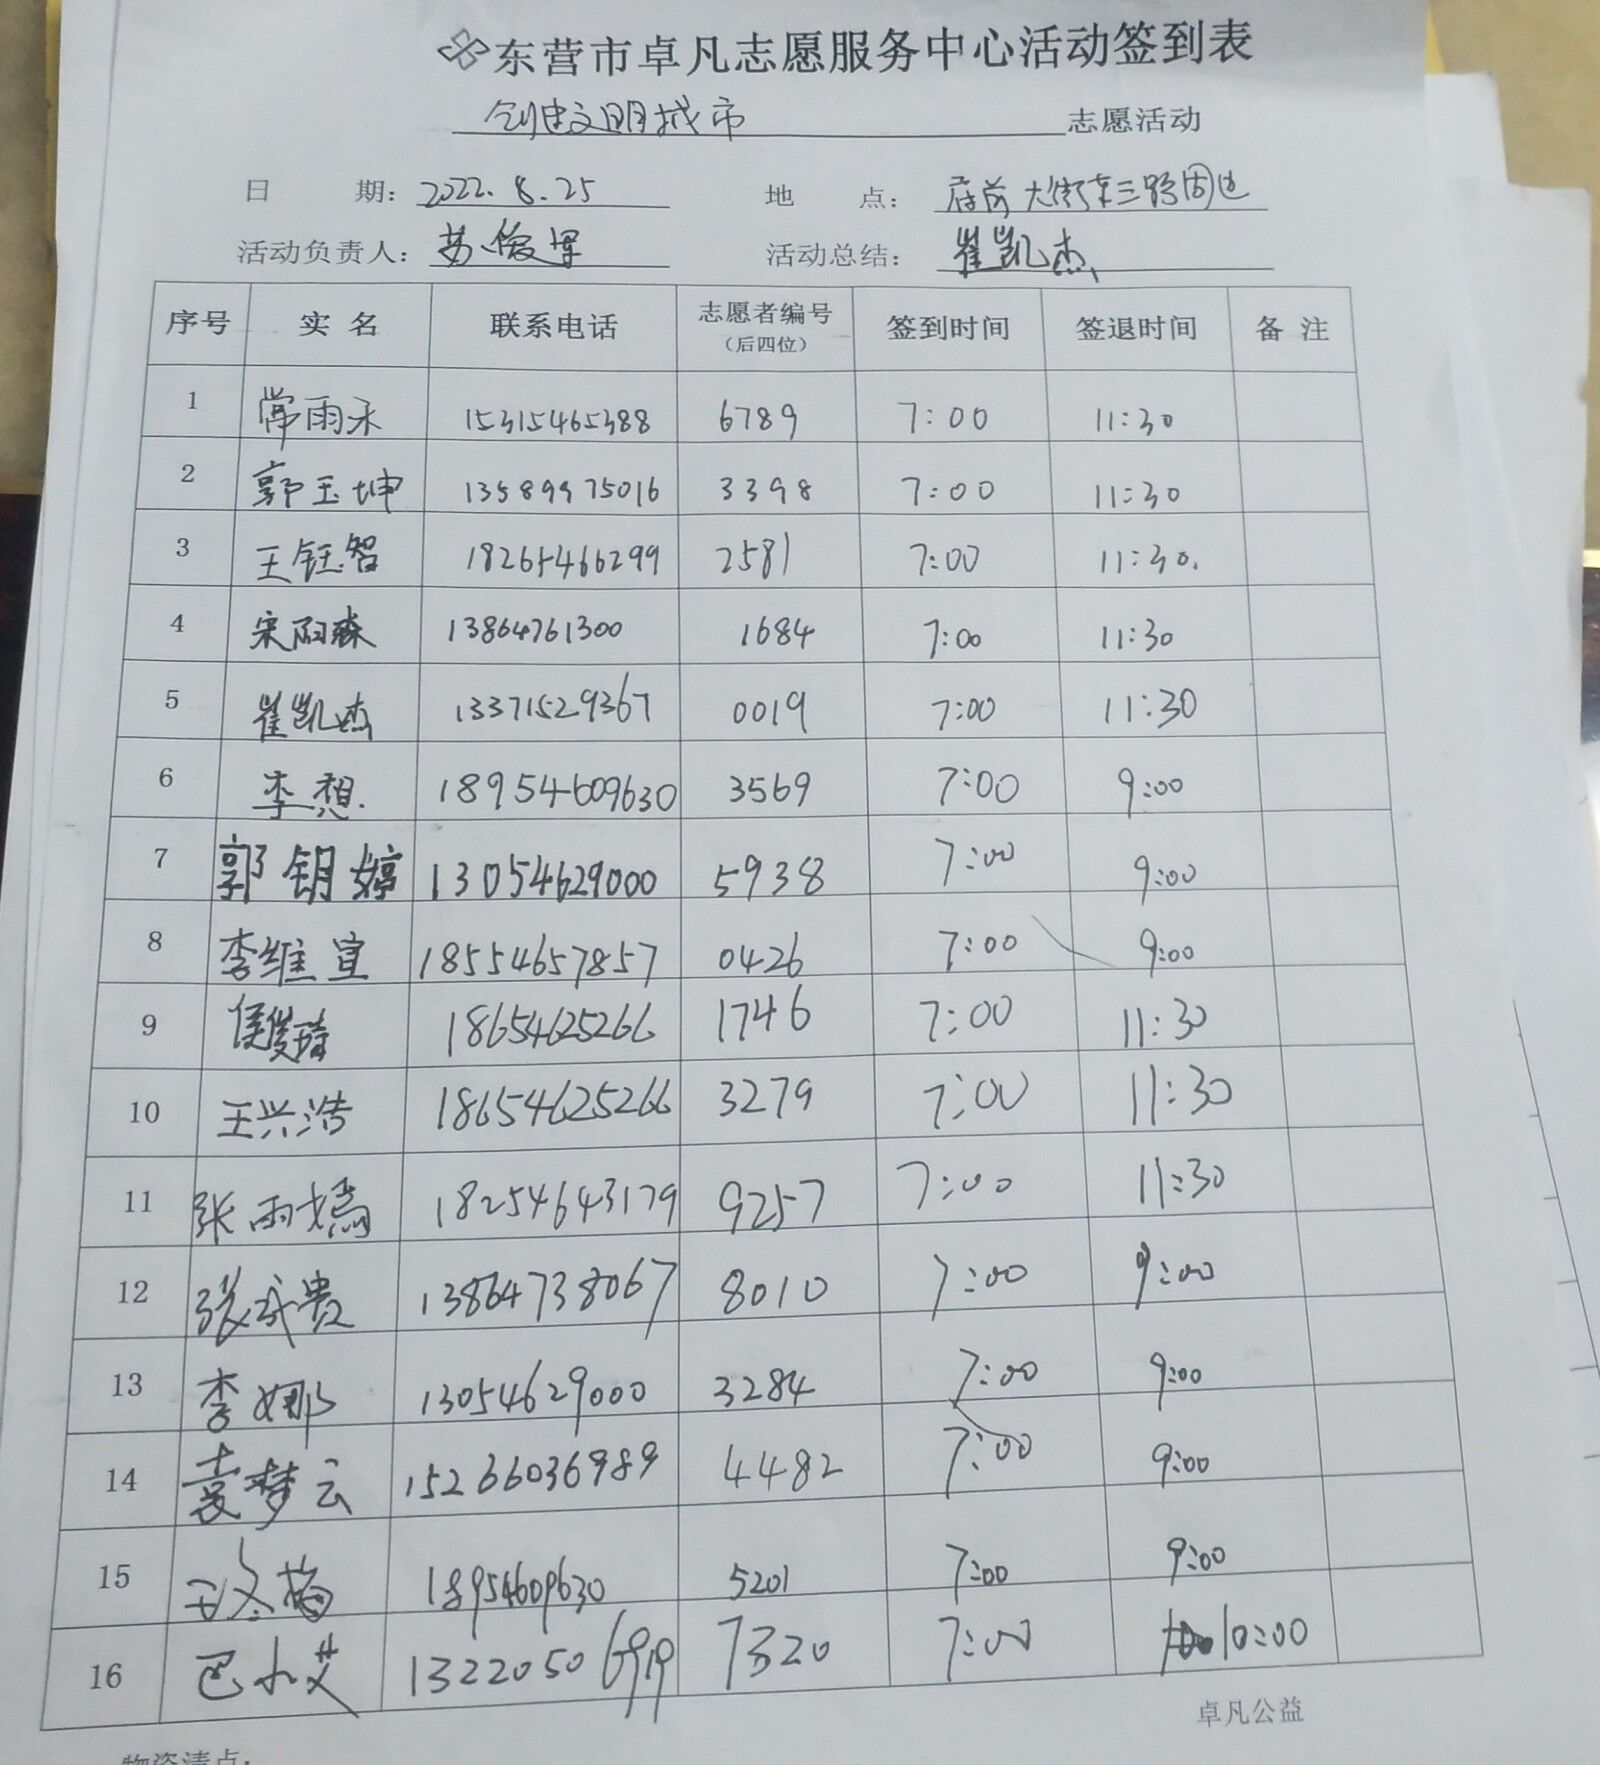 东营市卓凡志愿服务中心活动签到表
创建文明城市 志愿活动
日 期: 2022.8.25 地 点: 府前大街东三路周边
活动负责人: 苏俊军 活动总结: 崔凯杰
序号 实名 联系电话 志愿者编号(后四位) 签到时间 签退时间 备注
1 常雨禾 15315465388 6789 7:00 11:30
2 郭玉坤 13589975016 3398 7:00 11:30
3 王钰智 18265466299 2581 7:00 11:30.
4 宋雨森 13864761300 1684 7:00 11:30
5 崔凯杰 13371529367 0019 7:00 11:30
6 李想. 18954609630 3569 7:00 9:00
7 郭钥婷 13054629000 5938 7:00 9:00
8 李维宣 18554657857 0426 7:00 9:00
9 侯俊琦 18654625266 1746 7:00 11:30
10 王兴浩 18654625266 3279 7:00 11:30
11 张雨嫣 18254643179 9257 7:00 11:30
12 张成贵 13864738067 8010 7:00 9:00
13 李娜 13054629000 3284 7:00 9:00
14 袁梦云 15266036989 4482 7:00 9:00
15 王冬梅 18954609630 5201 7:00 9:00
16 巴小艾 1322050 7320 7:00 10:00
卓凡公益
物资清点: